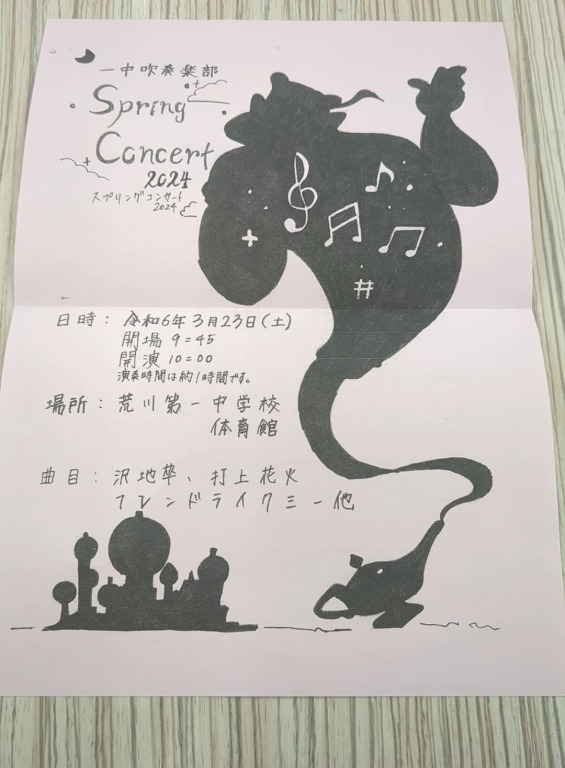 一中吹奏楽部
Spring
Concert
2024
スプリングコンサート
2024
日時：令和6年3月23日(土)
開場 9:45
開演 10:00
演奏時間は約1時間です。
場所：荒川第一中学校
体育館
曲目：沢地萃、打上花火
フレンドライクミー他